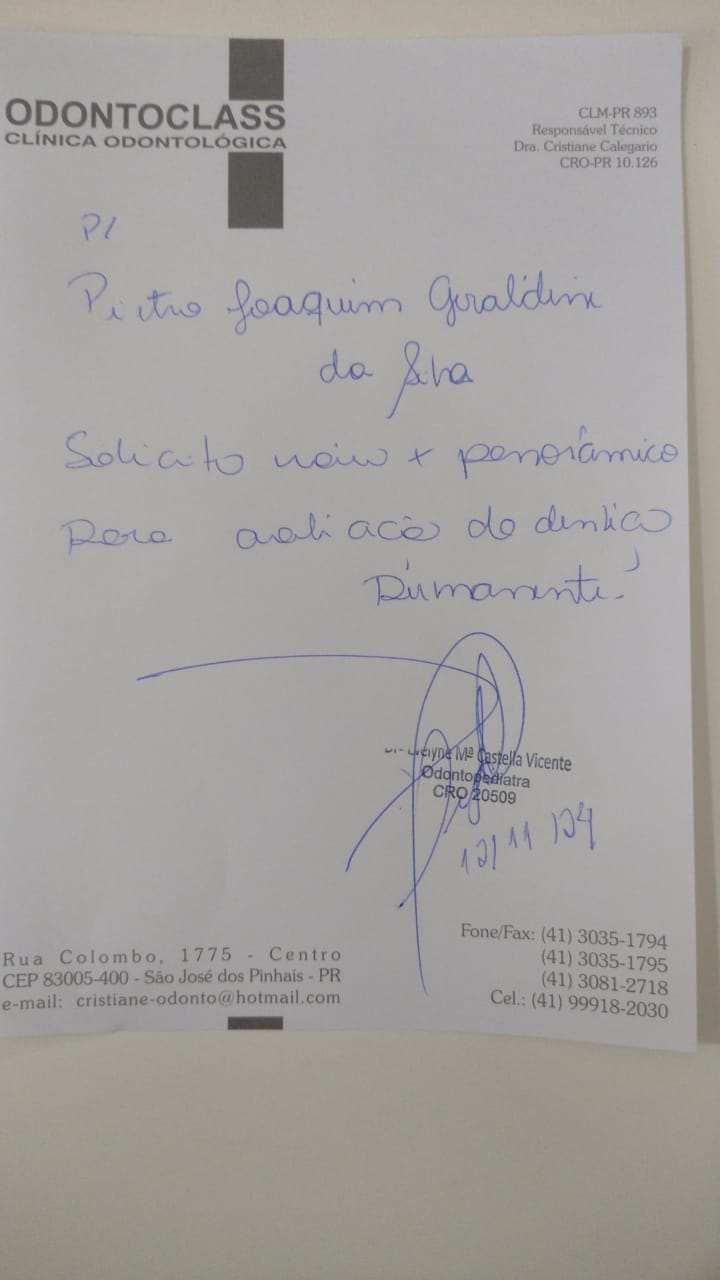 ODONTOCLASS
CLÍNICA ODONTOLÓGICA
CLM-PR 893
Responsável Técnico
Dra. Cristiane Calegario
CRO-PR 10.126
P/
Pietro Joaquim Geraldine
da Silva
Solicito raio x panorâmico
para avaliação da dentição
Permanente.
Mª Castella Vicente
Odontopediatra
CRO 20509
12/11/24
Rua Colombo, 1775 - Centro
CEP 83005-400 - São José dos Pinhais - PR
e-mail: cristiane-odonto@hotmail.com
Fone/Fax: (41) 3035-1794
(41) 3035-1795
(41) 3081-2718
Cel.: (41) 99918-2030